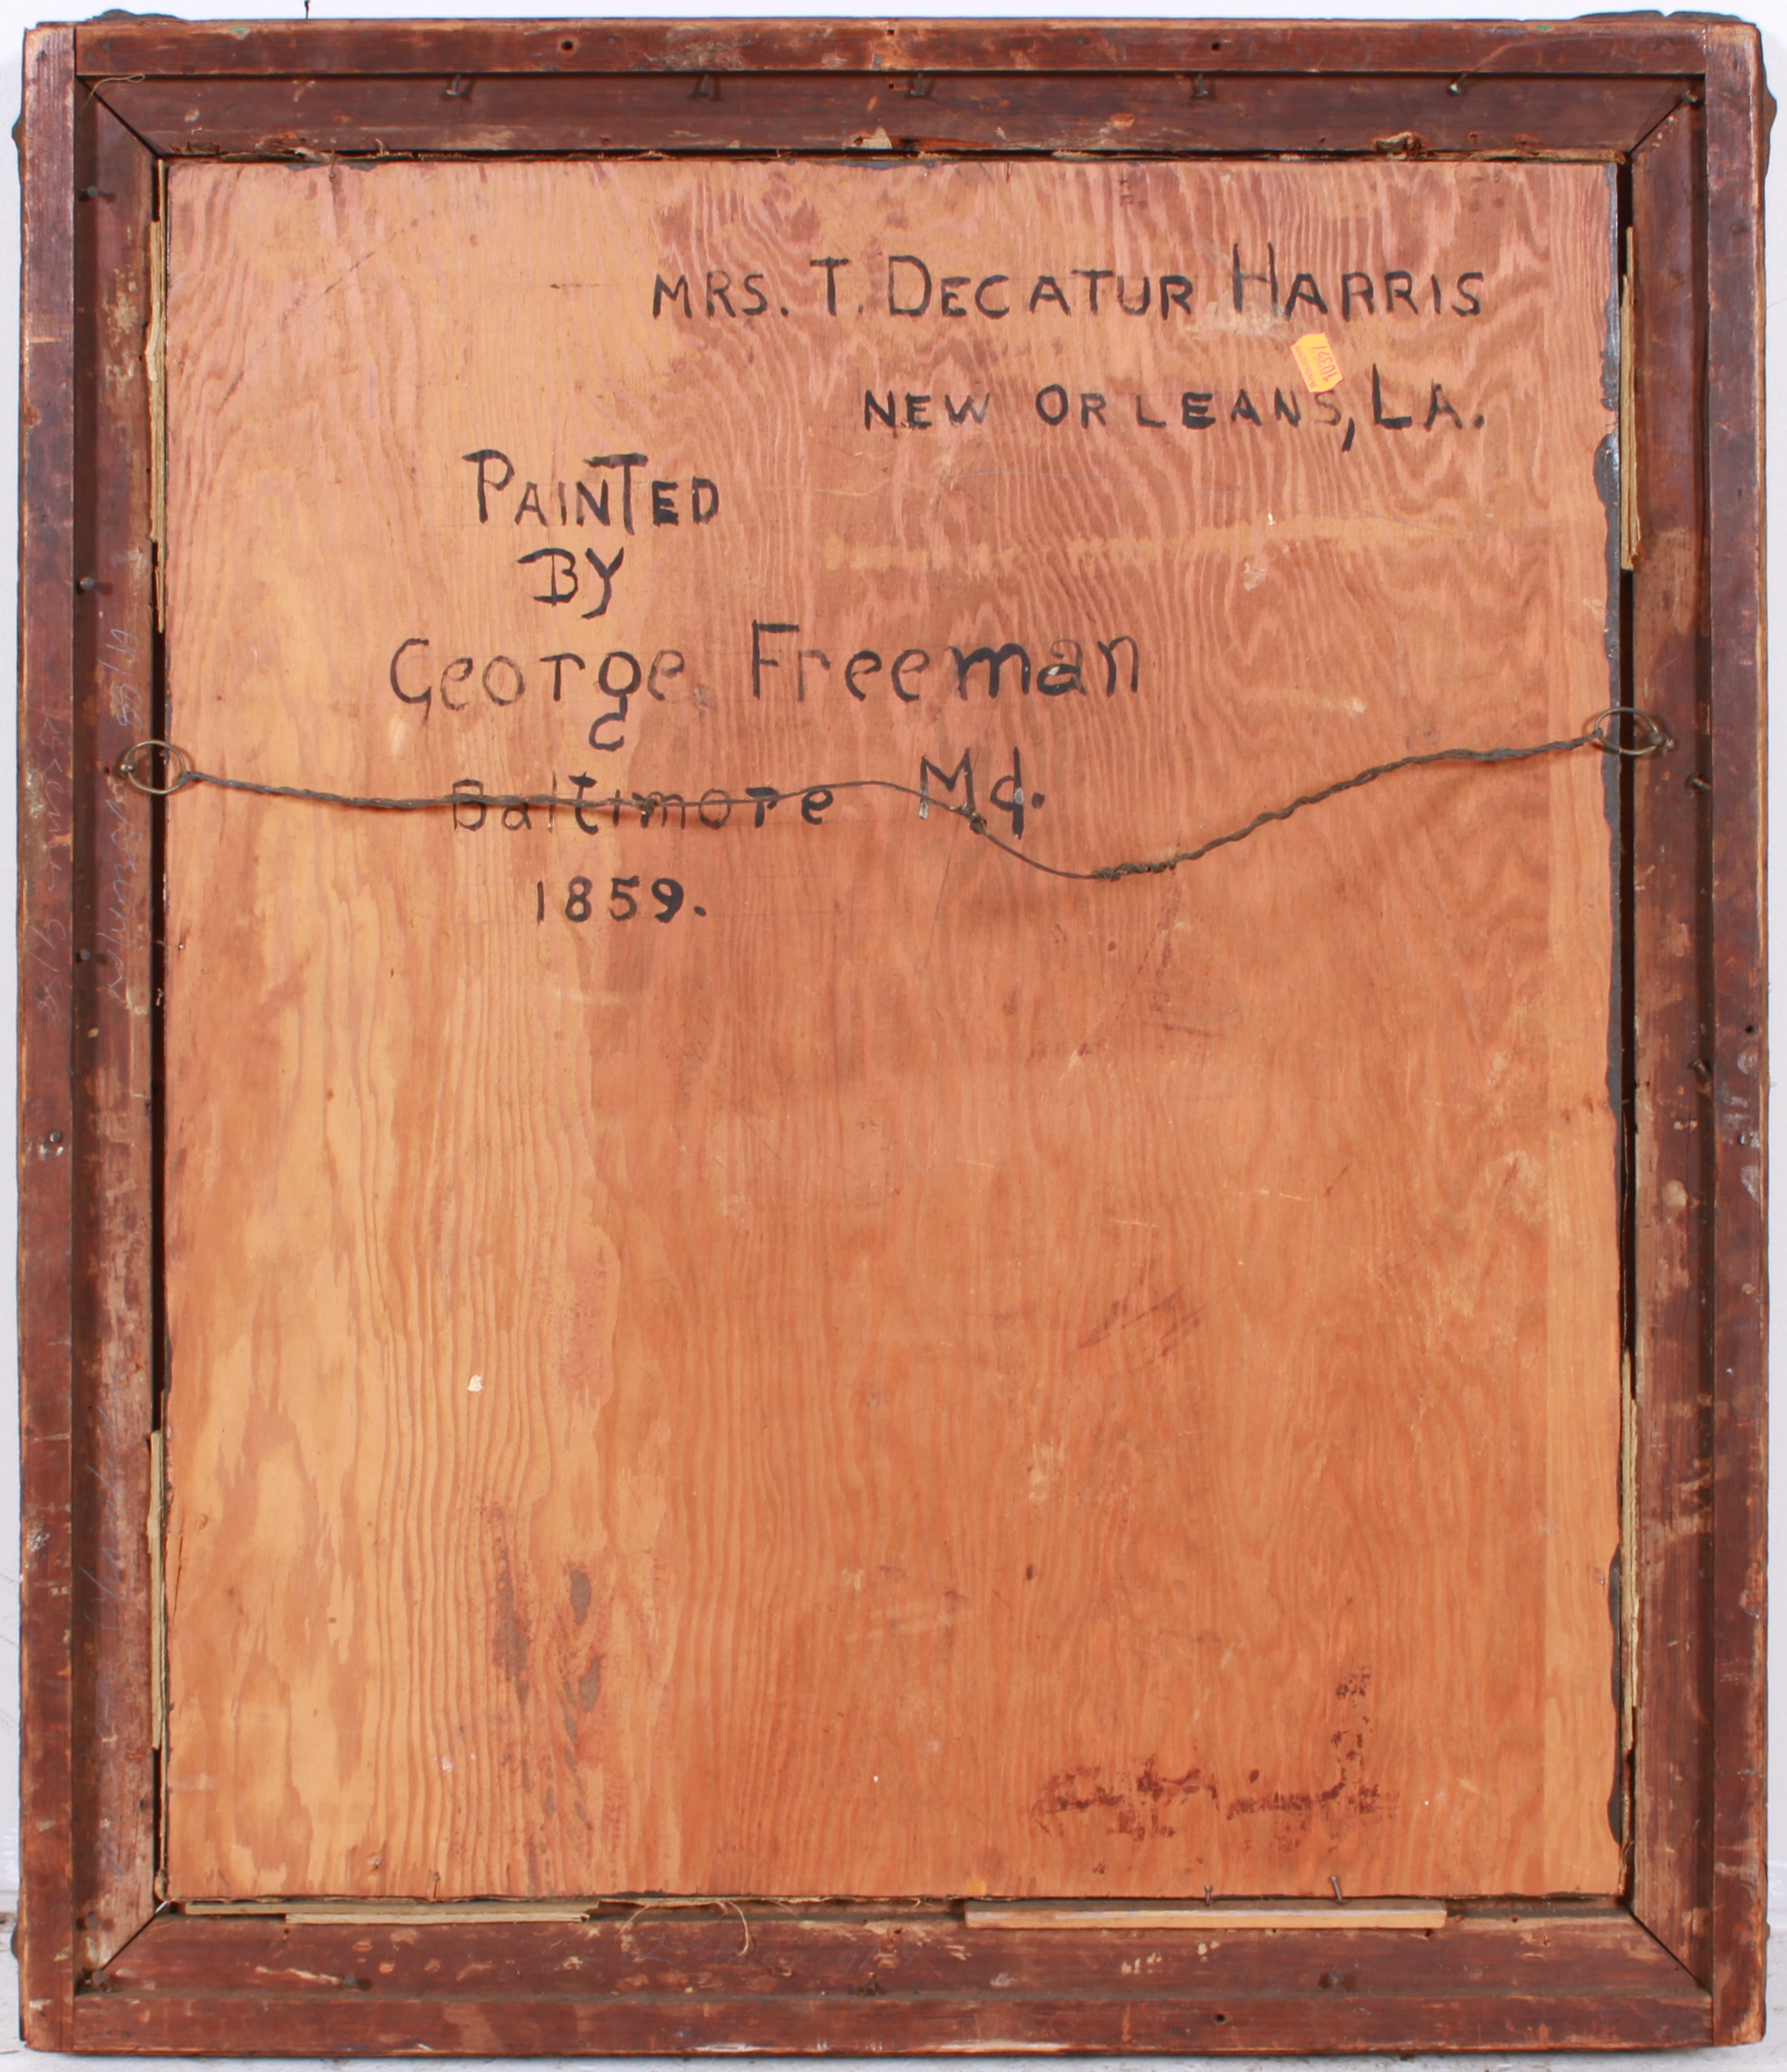 MRS. T. DECATUR HARRIS
NEW ORLEANS, LA.
PAINTED
BY
George Freeman
Baltimore Md.
1859.